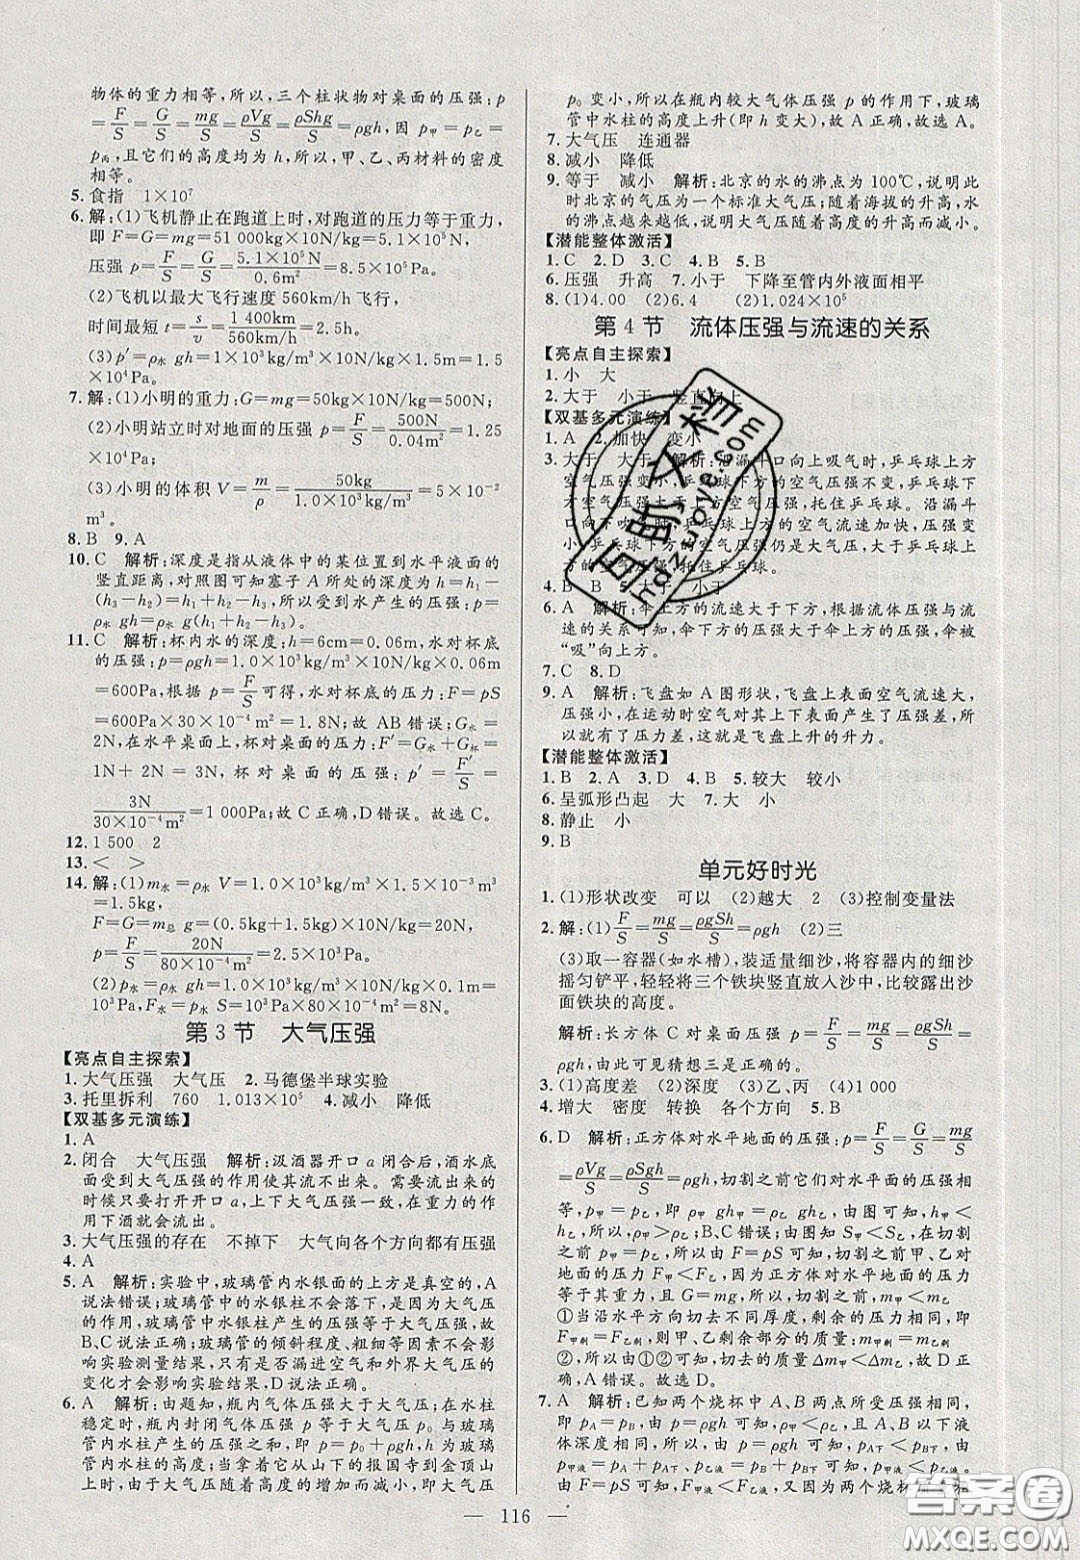 物体的重力相等,所以,三个柱状物对桌面的压强:p
=F/S=G/S=mg/S=ρVg/S=ρShg/S=ρgh,因 p甲=p乙=
p丙,且它们的高度均为h,所以,甲、乙、丙材料的密度
相等。
5.食指 1×10⁷
6.解:(1)飞机静止在跑道上时,对跑道的压力等于重力,
即F=G=mg=51 000kg×10N/kg=5.1×10⁵N,
压强 p=F/S=G/S=5.1×10⁵N/0.6m²=8.5×10⁵Pa.
(2)飞机以最大飞行速度560km/h飞行,
时间最短t=s/v=1 400km/560km/h=2.5h。
(3)p′=ρ水 gh=1×10³kg/m³×10N/kg×1.5m=1.5
×10⁴Pa.
7.解:(1)小明的重力:G=mg=50kg×10N/kg=500N;
(2)小明站立时对地面的压强 p=F/S=500N/0.04m²=1.25
×10⁴Pa;
(3)小明的体积V=m/ρ=50kg/1.0×10³kg/m³=5×10⁻²
m³.
8.B 9.A
10.C 解析:深度是指从液体中的某位置到水平液面的
竖直距离,对照图可知塞子A所处的深度为h=h₁-
(h₃-h₂)=h₁+h₂-h₃,所以受到水产生的压强:p=
ρ水 gh=ρ水 g(h₁+h₂-h₃).
11.C 解析:杯内水的深度:h=6cm=0.06m,水对杯底
的压强:p=ρgh=1.0×10³kg/m³×10N/kg×0.06m
=600Pa,根据 p=F/S可得,水对杯底的压力:F=pS
=600Pa×30×10⁻⁴m²=1.8N;故AB错误;G水=
2N,在水平桌面上,杯对桌面的压力:F′=G水+G杯=
1N+2N=3N,杯对桌面的压强:p′=F′/S=
3N/30×10⁻⁴m²=1 000Pa;故C正确,D错误。故选C。
12.1 500 2
13.< >
14.解:(1)m水=ρ水 V=1.0×10³kg/m³×1.5×10⁻³m³
=1.5kg,
F=G=m总 g=(0.5kg+1.5kg)×10N/kg=20N,
p=F/S=20N/80×10⁻⁴m²=2.5×10³Pa.
(2)p水=ρ水 gh=1.0×10³kg/m³×10N/kg×0.1m=
10³Pa,F水=p水 S=10³Pa×80×10⁻⁴m²=8N.
第3节 大气压强
【亮点自主探索】
1.大气压强 大气压 2.马德堡半球实验
3.托里拆利 760 1.013×10⁵ 4.减小 降低
【双基多元演练】
1.A
2.闭合 大气压强 解析:汲酒器开口a闭合后,酒水底
面受到大气压强的作用使其流不出来。需要流出来的
时候只要打开开口a,上下大气压强一致,在重力的作
用下酒就会流出。
3.大气压强的存在 不掉下 大气向各个方向都有压强
4.A
5.A 解析:实验中,玻璃管内水银面的上方是真空的,A
说法错误;玻璃管中的水银柱不会落下,是因为大气压
的作用,玻璃管中水银柱产生的压强等于大气压强,故
B、C说法正确;玻璃管的倾斜程度、粗细等因素不会影
响实验测量结果,只有是否漏进空气和外界大气压的
变化才会影响实验,故D说法正确。
6.A 解析:由题知,瓶内气体压强大于大气压,在水柱
稳定时,瓶内封闭气体压强 p等于大气压p₀与玻璃
管内水柱产生的压强之和,即 p=p₀+ρgh;玻璃管
内水柱的高度;当拿着它从山下的报国寺到金顶山
上时,由于大气压强随着高度的增加而减小,大气压
p₀变小,所以在瓶内较大气体压强p的作用下,玻璃
管中水柱的高度上升(即h变大),故A正确,故选A。
7.大气压 连通器
8.减小 降低
9.等于 减小 解析:北京的水的沸点为100℃,说明此
时北京的气压为一个标准大气压;随着海拔的升高,水
的沸点越来越低,说明大气压随着高度的升高而减小。
【潜能整体激活】
1.C 2.D 3.C 4.B 5.B
6.压强 升高 7.小于 下降至管内外液面相平
8.(1)4.00 (2)6.4 (2)1.024×10⁵
第4节 流体压强与流速的关系
【亮点自主探索】
1.小 大
2.大于 小于 竖直向上
【双基多元演练】
1.A 2.加快 变小
3.大于 大于 解析:沿漏斗口向上吸气时,乒乓球上方
空气压强变小,乒乓球下方的空气压强不变,乒乓球下
方空气压强大于上方空气压强,托住乒乓球。沿漏斗
口向下吹气时,乒乓球上方的空气流速加快,压强变
小,乒乓球下方的空气压强仍是大气压,故乒乓球下方
空气压强大于上方空气压强,托住乒乓球。
4.B 5.大于 小于
6.A 解析:伞上方的流速大于下方,根据流体压强与流
速的关系可知,伞下方的压强大于伞上方的压强,伞被
“吸”向上方。
7.C 8.D
9.A 解析:飞盘如A图形状,飞盘上表面空气流速大,
压强小,在运动时空气对其上下表面产生了压强差,所
以就有了压力差,这就是飞盘上升的升力。
【潜能整体激活】
1.B 2.A 3.D 4.B 5.较大 较小
6.呈弧形凸起 大 7.大 小
8.静止 小
9.B
单元好时光
1.(1)形状改变 可以 (2)越大 2 (3)控制变量法
2.解:(1)F/S=mg/S=ρgSh/S=ρgh (2)三
(3)取一容器(如水槽),装适量细沙,将容器内的细沙
摇匀铲平,轻轻将三个铁块竖直放入沙中,比较露出沙
面铁块的高度。
解析:长方体C对桌面压强 p=F/S=mg/S=ρgSh/S=
ρgh,由此可见猜想三是正确的。
3.(1)高度差 (2)深度 (3)乙、丙 (4)1 000
4.增大 密度 转换 各个方向 5.B
6.D 解析:正方体对水平地面的压强:p=F/S=G/S=mg/S
=ρVg/S=ρSgh/S=ρgh,切割之前它们对水平面的压强相
等,p甲=p乙,即ρ甲 gh甲=ρ乙 gh乙,由图可知,h甲
<h乙,所以,ρ甲>ρ乙;B、C错误;由图知S甲<S乙,在切割
之前p甲=p乙,所以由F=pS可知,切割之前甲、乙对
地面的压力F甲<F乙;因为正方体对水平地面的压力
等于其重力,且G=mg,所以,切割之前,m甲<m乙
①当沿水平方向切去不同厚度,剩余的压力相等,即
F甲剩=F乙剩,则甲、乙剩余部分的质量:m甲剩=m乙剩
②,所以由①②可得,切去的质量Δm甲<Δm乙,D正确,
A错误。故选D。
7.A 解析:已知两个烧杯中A、B两点所受压强相同,
即pA=pB,由 p=ρgh可知ρ甲>ρ乙,且A、B以下液
体深度相同,由 p=ρgh可知,pA下>pB下,由
p甲液=pA+pA下,p乙液=pB+pB下,可知p甲液>p乙液,由
F=pS可知,F甲液>F乙液,又因为两个烧杯
116
百助文档
mdzuoye.com
答案圈
MXQE.COM